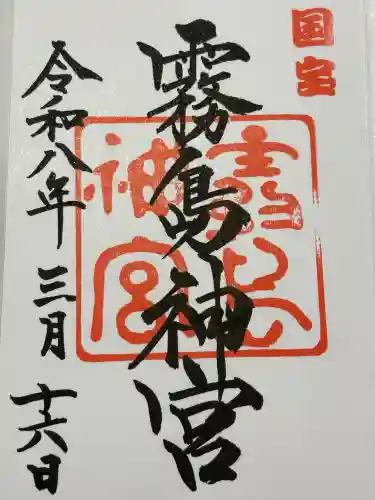 国宝
霧島神宮
令和八年三月十六日
霧島神宮